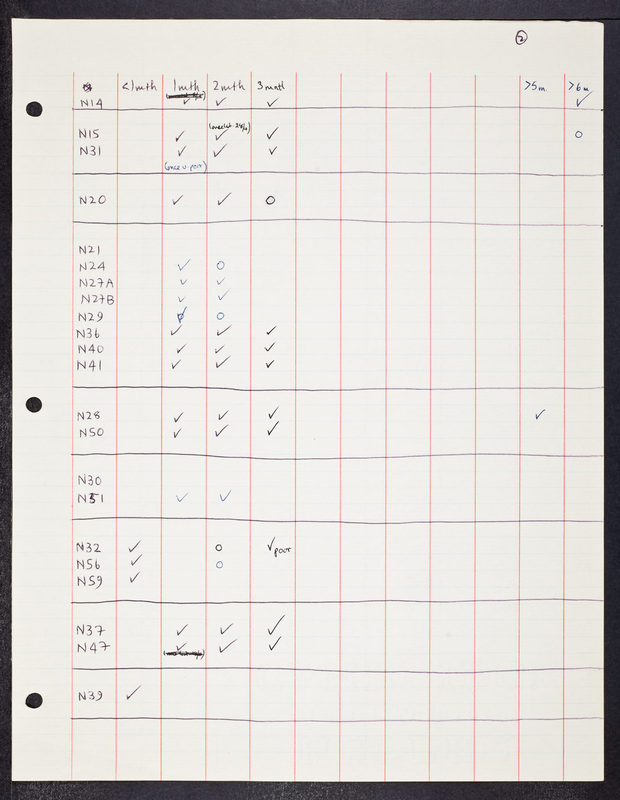 2
<1mth 1mth 2mth 3mnth >5m. >6m
N14 ✓ ✓ ✓ ✓
N15 ✓ ✓ ✓ O
N31 ✓ ✓ ✓
(once v. poor)
N20 ✓ ✓ O
N21
N24 ✓ O
N27A ✓ ✓
N27B ✓ ✓
N29 O
N36 ✓ ✓ ✓
N40 ✓ ✓ ✓
N41 ✓ ✓ ✓
N28 ✓ ✓ ✓ ✓
N50 ✓ ✓ ✓
N30
N51 ✓ ✓
N32 ✓ O ✓ poor
N56 ✓ O
N59 ✓
N37 ✓ ✓ ✓
N47 ✓ ✓ ✓
N39 ✓